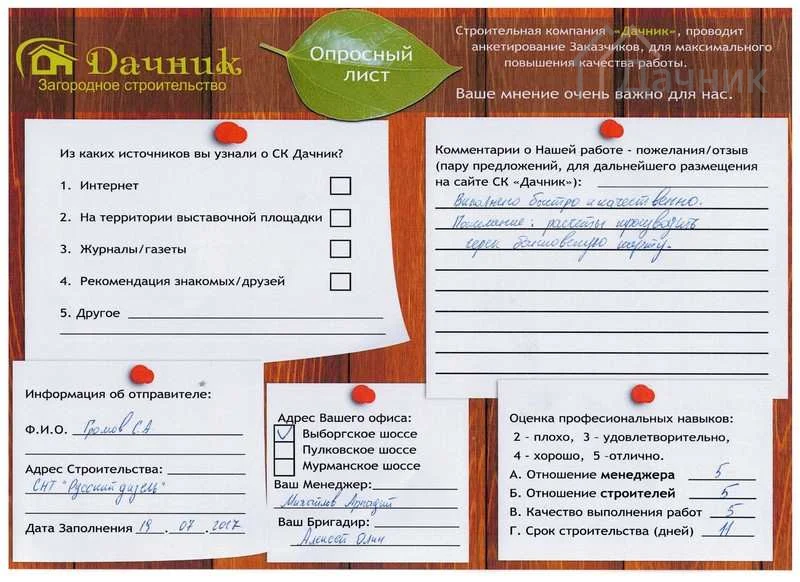 Дачник
Загородное строительство
Опросный
лист
Строительная компания «Дачник», проводит
анкетирование Заказчиков, для максимального
повышения качества работы.
Ваше мнение очень важно для нас.
Дачник
Из каких источников вы узнали о СК Дачник?
1. Интернет
2. На территории выставочной площадки
3. Журналы/газеты
4. Рекомендация знакомых/друзей
5. Другое
Комментарии о Нашей работе - пожелания/отзыв
(пару предложений, для дальнейшего размещения
на сайте СК «Дачник»):
Выполнено быстро и качественно.
Пожелание: расчеты производить
через банковскую карту.
Информация об отправителе:
Ф.И.О. Громов С А
Адрес Строительства:
СНТ "Русский дизель"
Дата Заполнения 19 .07 .2017
Адрес Вашего офиса:
Выборгское шоссе
Пулковское шоссе
Мурманское шоссе
Ваш Менеджер:
Михайлов Аркадий
Ваш Бригадир:
Алексей
Оценка профессиональных навыков:
2 - плохо, 3 - удовлетворительно,
4 - хорошо, 5 -отлично.
А. Отношение менеджера 5
Б. Отношение строителей 5
В. Качество выполнения работ 5
Г. Срок строительства (дней) 11